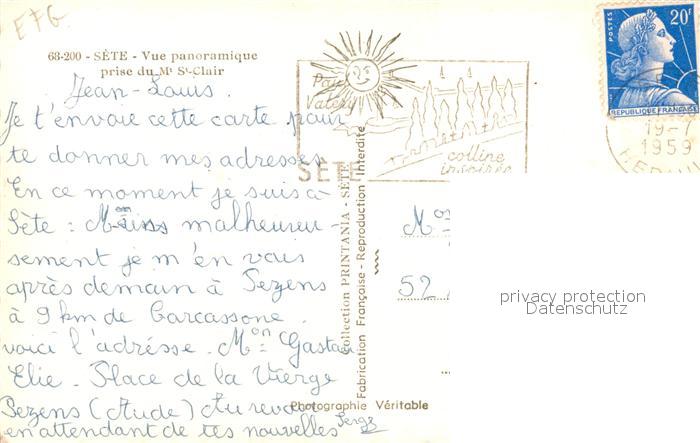 E76.
68-200 - SÈTE - Vue panoramique
prise du Mt St-Clair
Jean-Louis.
Je t'envoie cette carte pour
te donner mes adresses.
En ce moment je suis à
Sète : malheureu-
sement je m'en vais
après demain à Pezens
à 9 km de Carcassone.
voici l'adrésse. Mon Gaston
Elie. Place de la Vierge
Pezens (Aude) Au revoir
en attendant de tes nouvelles Serge
Paul
Valéry
SÈTE
colline
inspirée
Collection PRINTANIA - SÈTE
Fabrication Française - Reproduction Interdite
Photographie Véritable
POSTES
20F
REPUBLIQUE FRANÇAISE
19-
1959
HERAULT
52
privacy protection
Datenschutz